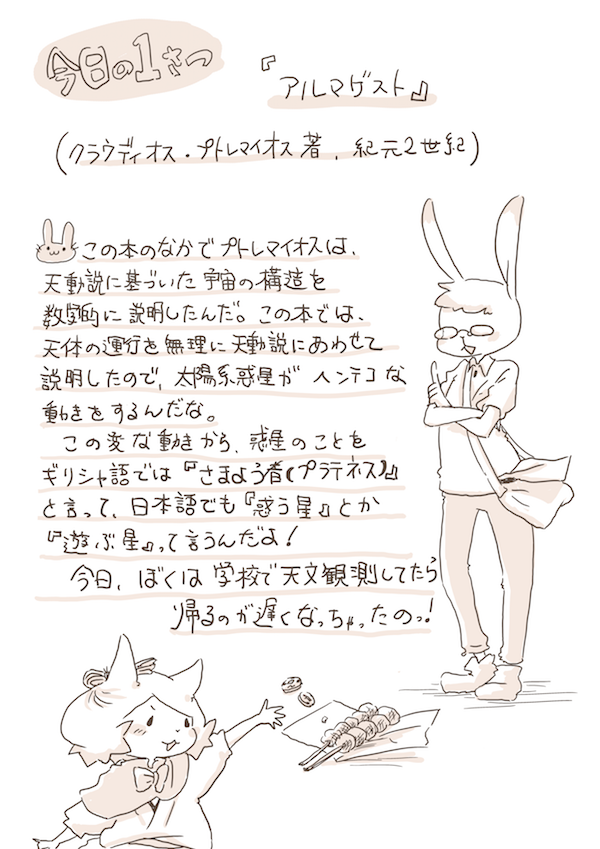 今日の1さつ
『アルマゲスト』
(クラウディオス・プトレマイオス著、紀元2世紀)
この本のなかでプトレマイオスは、
天動説に基づいた宇宙の構造を
数学的に説明したんだ。この本では、
天体の運行を無理に天動説にあわせて
説明したので、太陽系惑星がヘンテコな
動きをするんだな。
この変な動きから、惑星のことを
ギリシャ語では『さまよう者(プラテネス)』
と言って、日本語でも『惑う星』とか
『遊ぶ星』って言うんだよ!
今日、ぼくは学校で天文観測してたら
帰るのが遅くなっちゃったのっ!